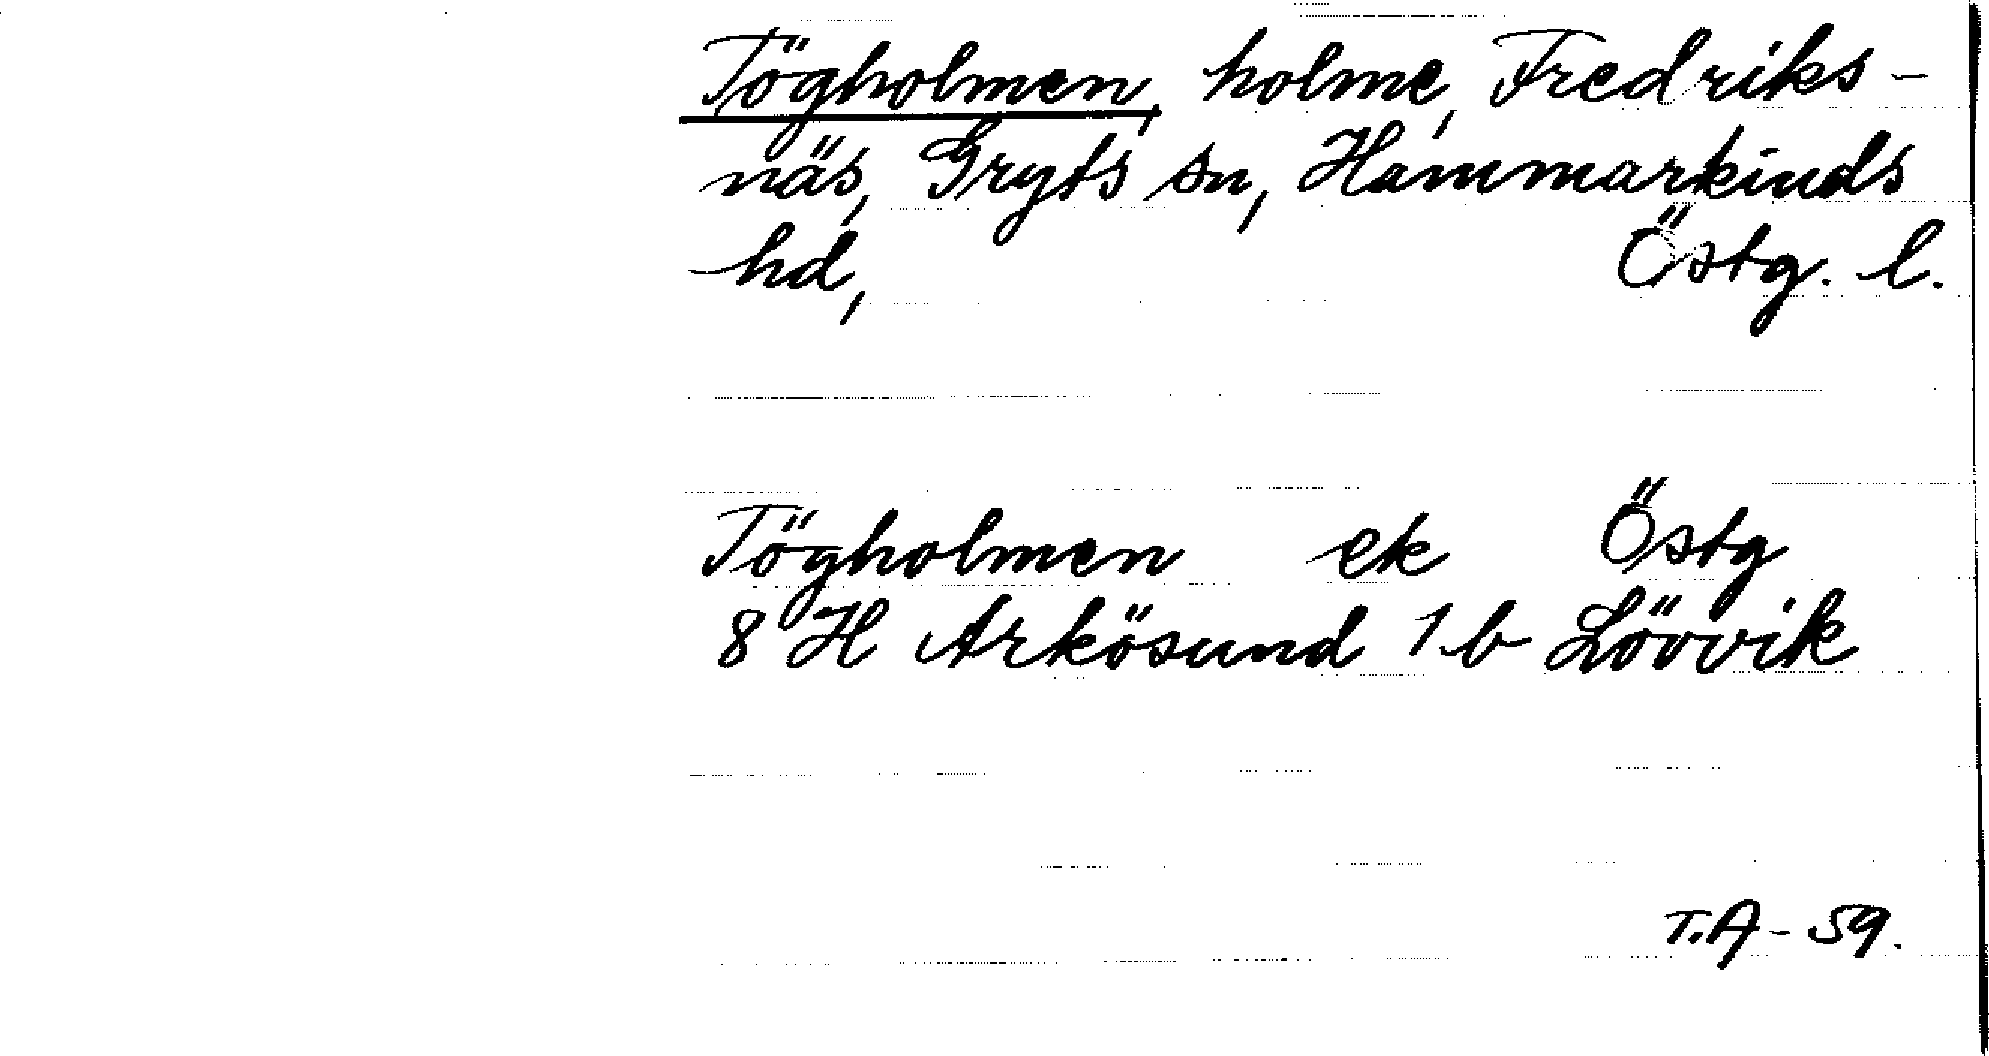 Tögholmen, holme, Fredriks-
näs, Gryts sn, Hammarkinds
hd, Östg. l.
Tögholmen ek Östg
8 H Arkösund 1 b Lövvik
T.A - 59.